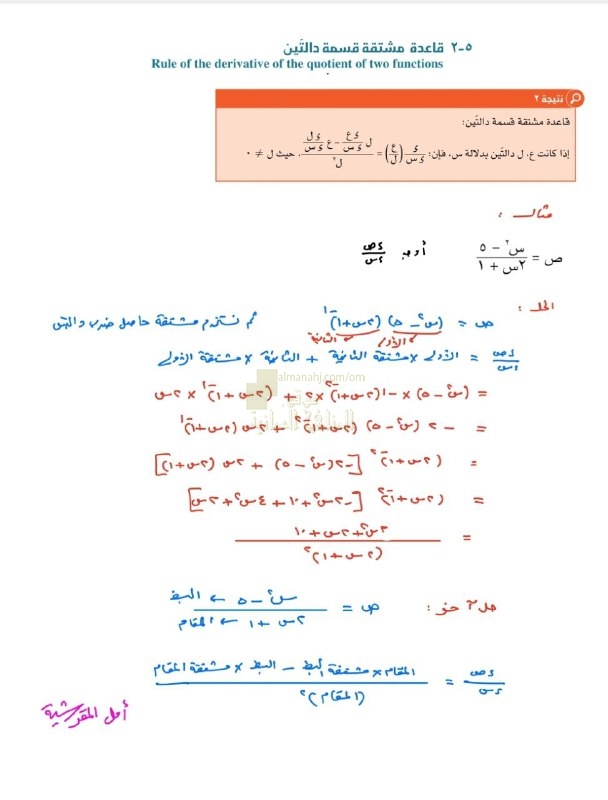 ٢-٥ قاعدة مشتقة قسمة دالتَين
Rule of the derivative of the quotient of two functions
نتيجة ٢
قاعدة مشتقة قسمة دالتَين:
إذا كانت ع، ل دالتَين بدلالة س، فإن: ء/ءس (ع/ل) = (ل ءع/ءس − ع ءل/ءس)/ل²، حيث ل ≠ ٠
مثال :
ص = (س² − ٥)/(٢س + ١) أوجد ءص/ءس
الحل :
ص = (س² − ٥) (٢س+١)⁻¹ ثم نستخدم مشتقة حاصل ضرب دالتين
الأولى الثانية
ءص/ءس = الأولى × مشتقة الثانية + الثانية × مشتقة الأولى
almanahj.com/om
= (س² − ٥) × −١(٢س+١)⁻² × ٢ + (٢س+١)⁻¹ × ٢س
= −٢ (س² − ٥) (٢س+١)⁻² + ٢س (٢س+١)⁻¹
= (٢س+١)⁻² [−٢(س² − ٥) + ٢س (٢س+١)]
= (٢س+١)⁻² [−٢س² + ١٠ + ٤س² + ٢س]
= (٢س² + ٢س + ١٠)/(٢س+١)²
حل آخر : ص = (س² − ٥ ← البسط)/(٢س + ١ ← المقام)
ءص/ءس = (المقام × مشتقة البسط − البسط × مشتقة المقام)/(المقام)²
أمل المقرشية